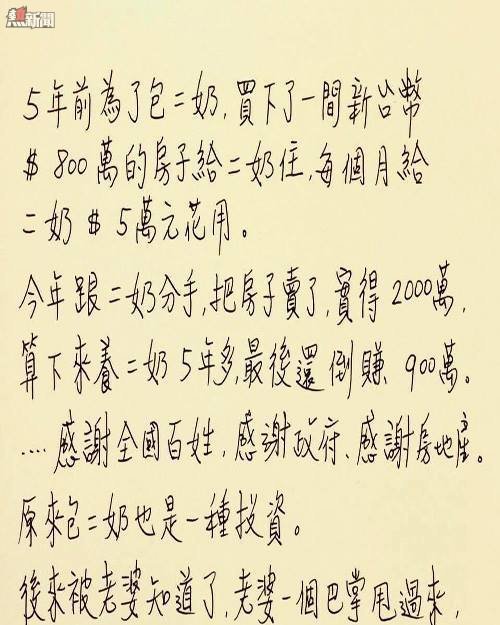 焦新聞
5年前為了包二奶,買下了一間新台幣
$800萬的房子給二奶住,每個月給
二奶$5萬元花用。
今年跟二奶分手,把房子賣了,實得2000萬,
算下來養二奶5年多,最後還倒賺900萬。
....感謝全國百姓,感謝政府、感謝房地產。
原來包二奶也是一種投資。
後來被老婆知道了,老婆一個巴掌甩過來,